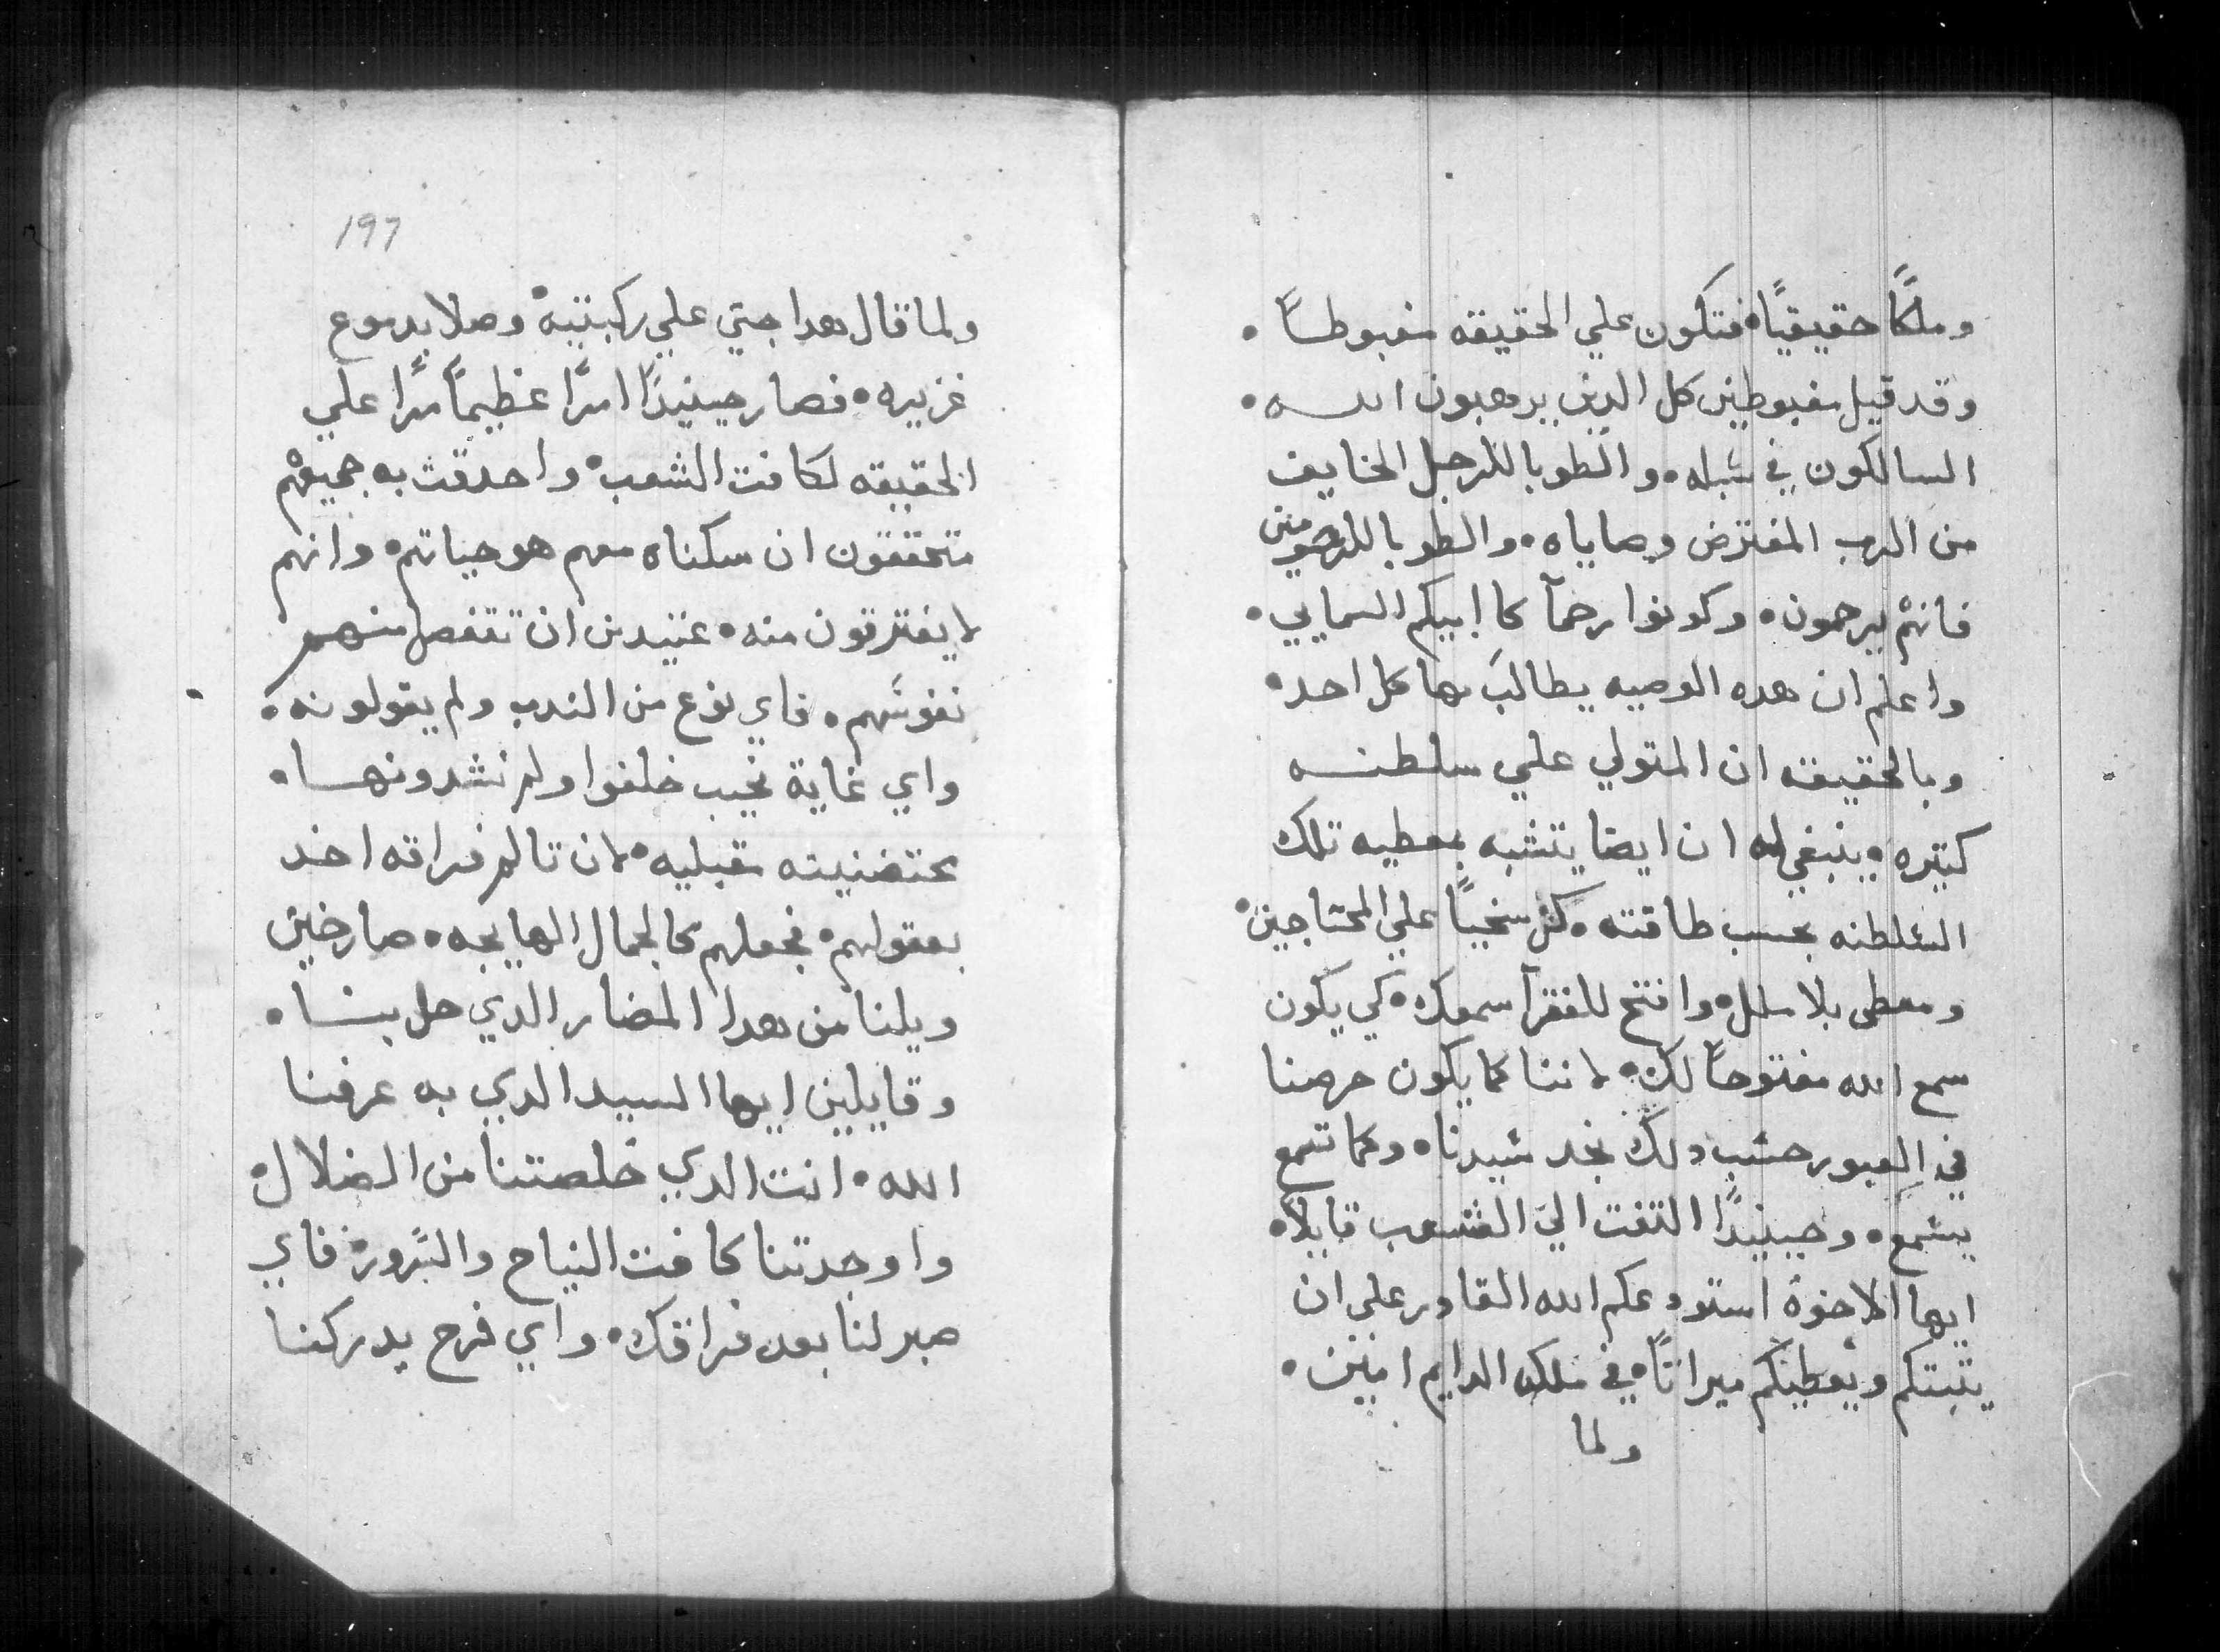 وملكًا حقيقيًا۰ فتكون علي الحقيقه مغبوطاً۰
وقد قيل مغبوطين كل الدين يرهبون الله۰
السالكون في سبله۰ والطوبا للرجل الخايف
من الرب المفترض وصاياه۰ والطوبا للرحومين
فانهم يرحمون۰ وكونوا رحمآ كا ابيكم السمايي۰
واعلم ان هده الوصيه يطالب بها كل احد۰
وبالحقيقه ان المتولي علي سلطنه
كبيره۰ ينبغي له ان ايضا يتشبه بمعطيه تلك
السلطنه بحسب طاقته۰ كن سخيًا علي المحتاجين۰
ومعطى بلا ملل۰ وافتح للفقرآ سمعك۰ كي يكون
سمع الله مفتوحًا لك۰ لاننا كما يكون حرصنا
في العبور حسب دلك نجد سيدنا۰ وكما تسمع
يسمع۰ وحينيدًا التفت الي الشعب قايلاً۰
ايها الاخوة استودعكم الله القادر على ان
يتبتكم ويعطيكم ميراتًا۰ في ملكه الدايم امين۰
ولما
197
ولما قال هدا جتي علي ركبتيه۰ وصلا بدموع
غزيره۰ فصار حينيدًا امرًا عظيمًا مرًا علي
الحقيقه لكافت الشعب۰ واحدقت به جميعهم
متحققون ان سكناه معهم هو حياتهم۰ وانهم
لا يفترقون منه۰ عتيدين ان تنفصل منهم
نفوسهم۰ فاي نوع من الندب ولم يقولونه۰
واي غاية نحيب خلفوا ولم نشدونها۰
محتضنينه مقبليه۰ لان تالم فراقه اخد
بعقولهم۰ فجعلهم كالجمال الهايجه۰ صارخين
ويلنا من هدا المضار الدي حل بنا۰
وقايلين ايها السيد الدي به عرفنا
الله۰ انت الدي خلصتنا من الضلال۰
واوجدتنا كافت النياح والسرور۰ فاي
صبر لنا بعد فراقك۰ واي فرح يدركنا